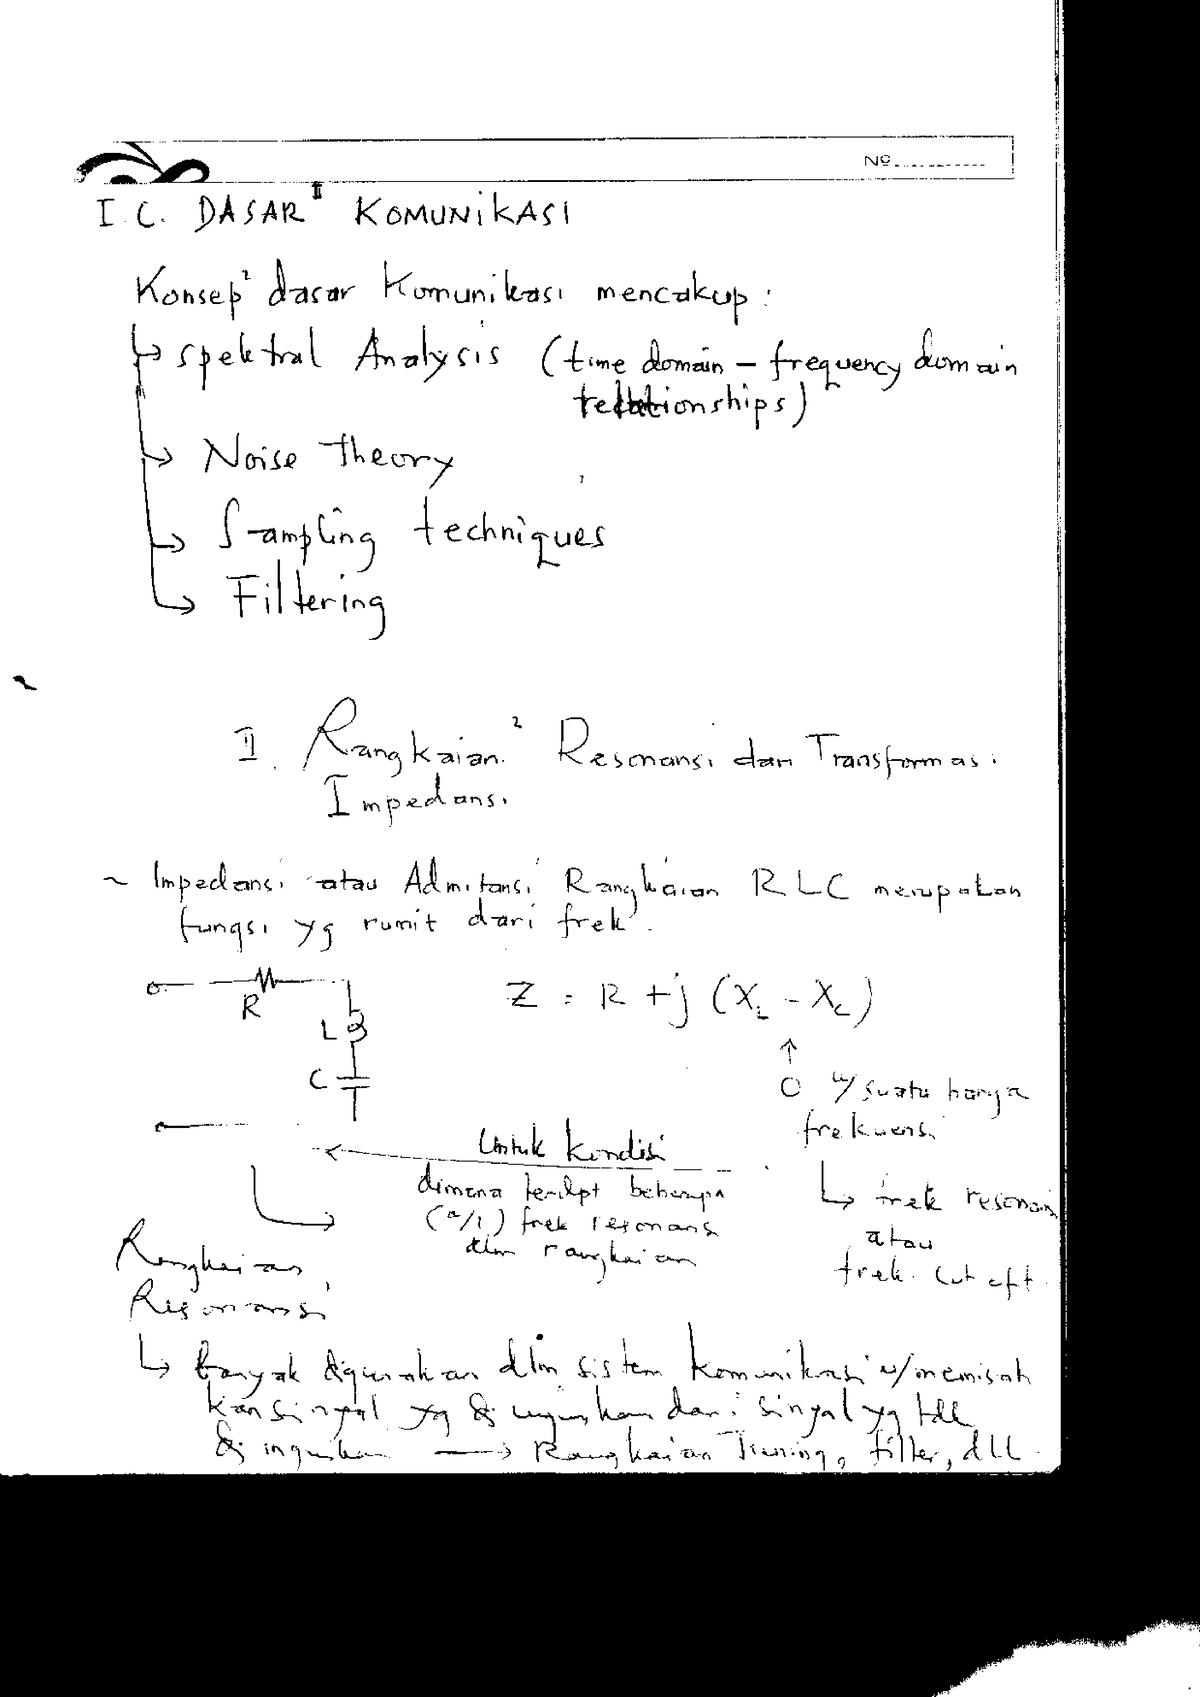 No
I.C. DASAR² KOMUNIKASI
Konsep² dasar Komunikasi mencakup :
↳ spektral Analysis (time domain – frequency domain
relationships)
→ Noise theory
→ Sampling techniques
↳ Filtering
II. Rangkaian² Resonansi dan Transformasi
Impedansi
~ Impedansi atau Admitansi Rangkaian RLC merupakan
fungsi yg rumit dari frek.
R
L
C
Z = R + j (X_L - X_C)
↑
0 u/ suatu harga
frekuensi
↳ frek resonansi
atau
frek. cut off
Untuk kondisi
dimana terdpt beberapa
(a/1) frek resonansi
dlm rangkaian
Rangkaian
Resonansi
↳ banyak digunakan dlm sistem komunikasi u/memisah
kan sinyal yg diinginkan dari sinyal yg tdk
diinginkan → Rangkaian Tuning, filter, dll